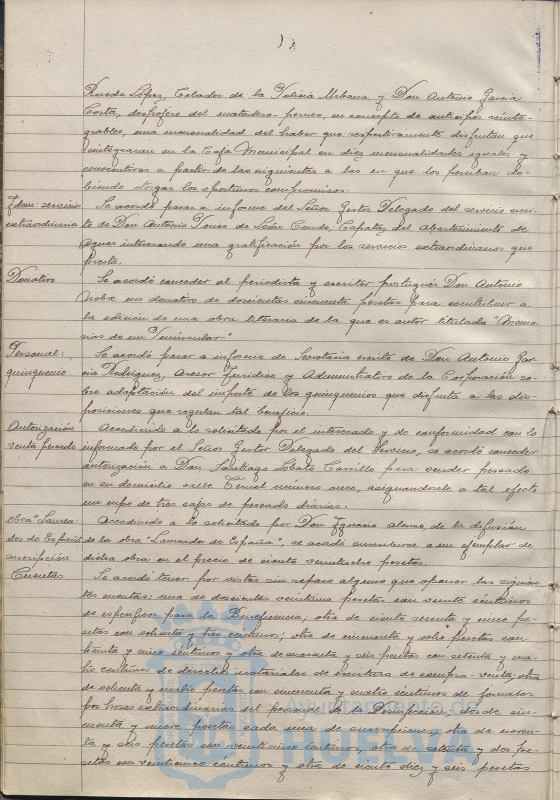 Rueda López, Celador de la Policia Urbana y Don Antonio García
Costa, desollador del matadero, perciba, en concepto de anticipos reinte-
grables, una mensualidad del haber que respectivamente disfrutan que
reintegraran en la Caja Municipal en diez mensualidades iguales y
consecutivas a partir de las siguientes a las en que los perciban de-
biendo otorgar los oportunos compromisos.
Idem: servicios extraordinarios
Se acordó pasar a informe del Señor Gestor Delegado del servicio escri-
to de Don Antonio Ponce de León Conde, Capataz del Abastecimiento de
Aguas interesando una gratificación por los servicios extraordinarios que
presta.
Donativo
Se acordó conceder al periodista y escritor portugués Don Antonio
Nobre un donativo de doscientas cincuenta pesetas para contribuir a
la edición de una obra literaria de la que es autor titulada "Memo-
rias de un Peninsular"
Personal: quinquenio
Se acordó pasar a informe de Secretaria escrito de Don Antonio Gar-
cía Rodríguez, Asesor Juridico y Administrativo de la Corporación so-
bre adaptación del importe de los quinquenios que disfruta a las dis-
posiciones que regulan tal beneficio.
Autorización venta pescado
Accediendo a lo solicitado por el interesado y de conformidad con lo
informado por el Señor Gestor Delegado del Servicio, se acordó conceder
autorización a Don Santiago Lobato Carrillo para vender pescado
en su domicilio calle Teruel número once, asignandosele a tal efecto
un cupo de tres cajas de pescado diarias.
Obra "Laurea-
dos de España" suscripción
Accediendo a lo solicitado por Don Ignacio Alonso, de la difusión
de la obra "Laureados de España", se acordó suscribirse a un ejemplar de
dicha obra en el precio de ciento veinticuatro pesetas.
Cuentas
Se acordó tener por vistas sin reparo alguno que oponer las siguien-
tes cuentas: una de doscientas veintiuna pesetas con veinte céntimos
de específicos para la Beneficencia; otra de ciento sesenta y cinco pe-
setas con sesenta y tres centimos; otra de cincuenta y ocho pesetas con
treinta y cinco céntimos y otra de cuarenta y seis pesetas con setenta y cua-
tro centimos de derechos notariales de escritura de compra-venta; otra
de ochenta y cuatro pesetas con cincuenta y cuatro céntimos de jornales
por horas extraordinarias del personal de la Desinfeccion; dos de cin-
cuenta y nueve pesetas cada una de suscripciones; otra de noven-
ta y seis pesetas con veinticinco centimos, otra de setenta y dos pe-
setas con veinticinco centimos y otra de ciento diez y seis pesetas
Ayuntamiento de
HUELVA